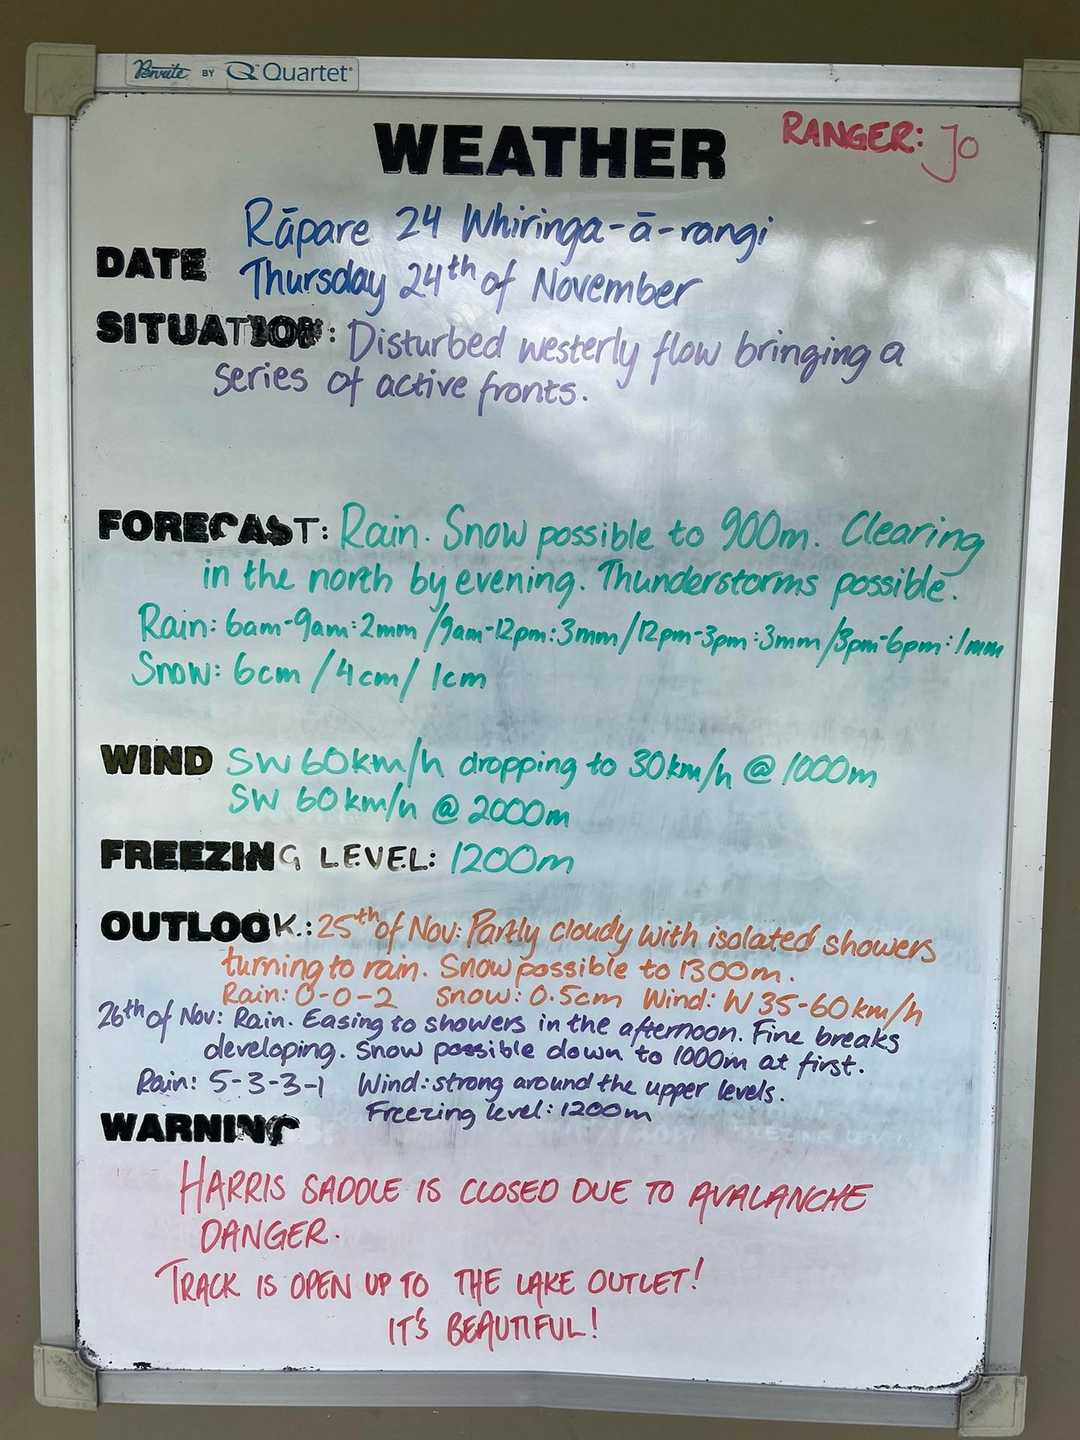 Penrite BY Quartet
WEATHER
RANGER: Jo
Rāpare 24 Whiringa-ā-rangi
DATE Thursday 24th of November
SITUATION: Disturbed westerly flow bringing a
series of active fronts.
FORECAST: Rain. Snow possible to 900m. Clearing
in the north by evening. Thunderstorms possible.
Rain: 6am-9am:2mm/9am-12pm:3mm/12pm-3pm:3mm/3pm-6pm:1mm
Snow: 6cm/4cm/1cm
WIND SW 60km/h dropping to 30km/h @ 1000m
SW 60km/h @ 2000m
FREEZING LEVEL: 1200m
OUTLOOK: 25th of Nov: Partly cloudy with isolated showers
turning to rain. Snow possible to 1300m.
Rain: 0-0-2 Snow: 0.5cm Wind: W 35-60km/h
26th of Nov: Rain. Easing to showers in the afternoon. Fine breaks
developing. Snow possible down to 1000m at first.
Rain: 5-3-3-1 Wind: strong around the upper levels.
Freezing level: 1200m
WARNING
HARRIS SADDLE IS CLOSED DUE TO AVALANCHE
DANGER.
TRACK IS OPEN UP TO THE LAKE OUTLET!
IT'S BEAUTIFUL!